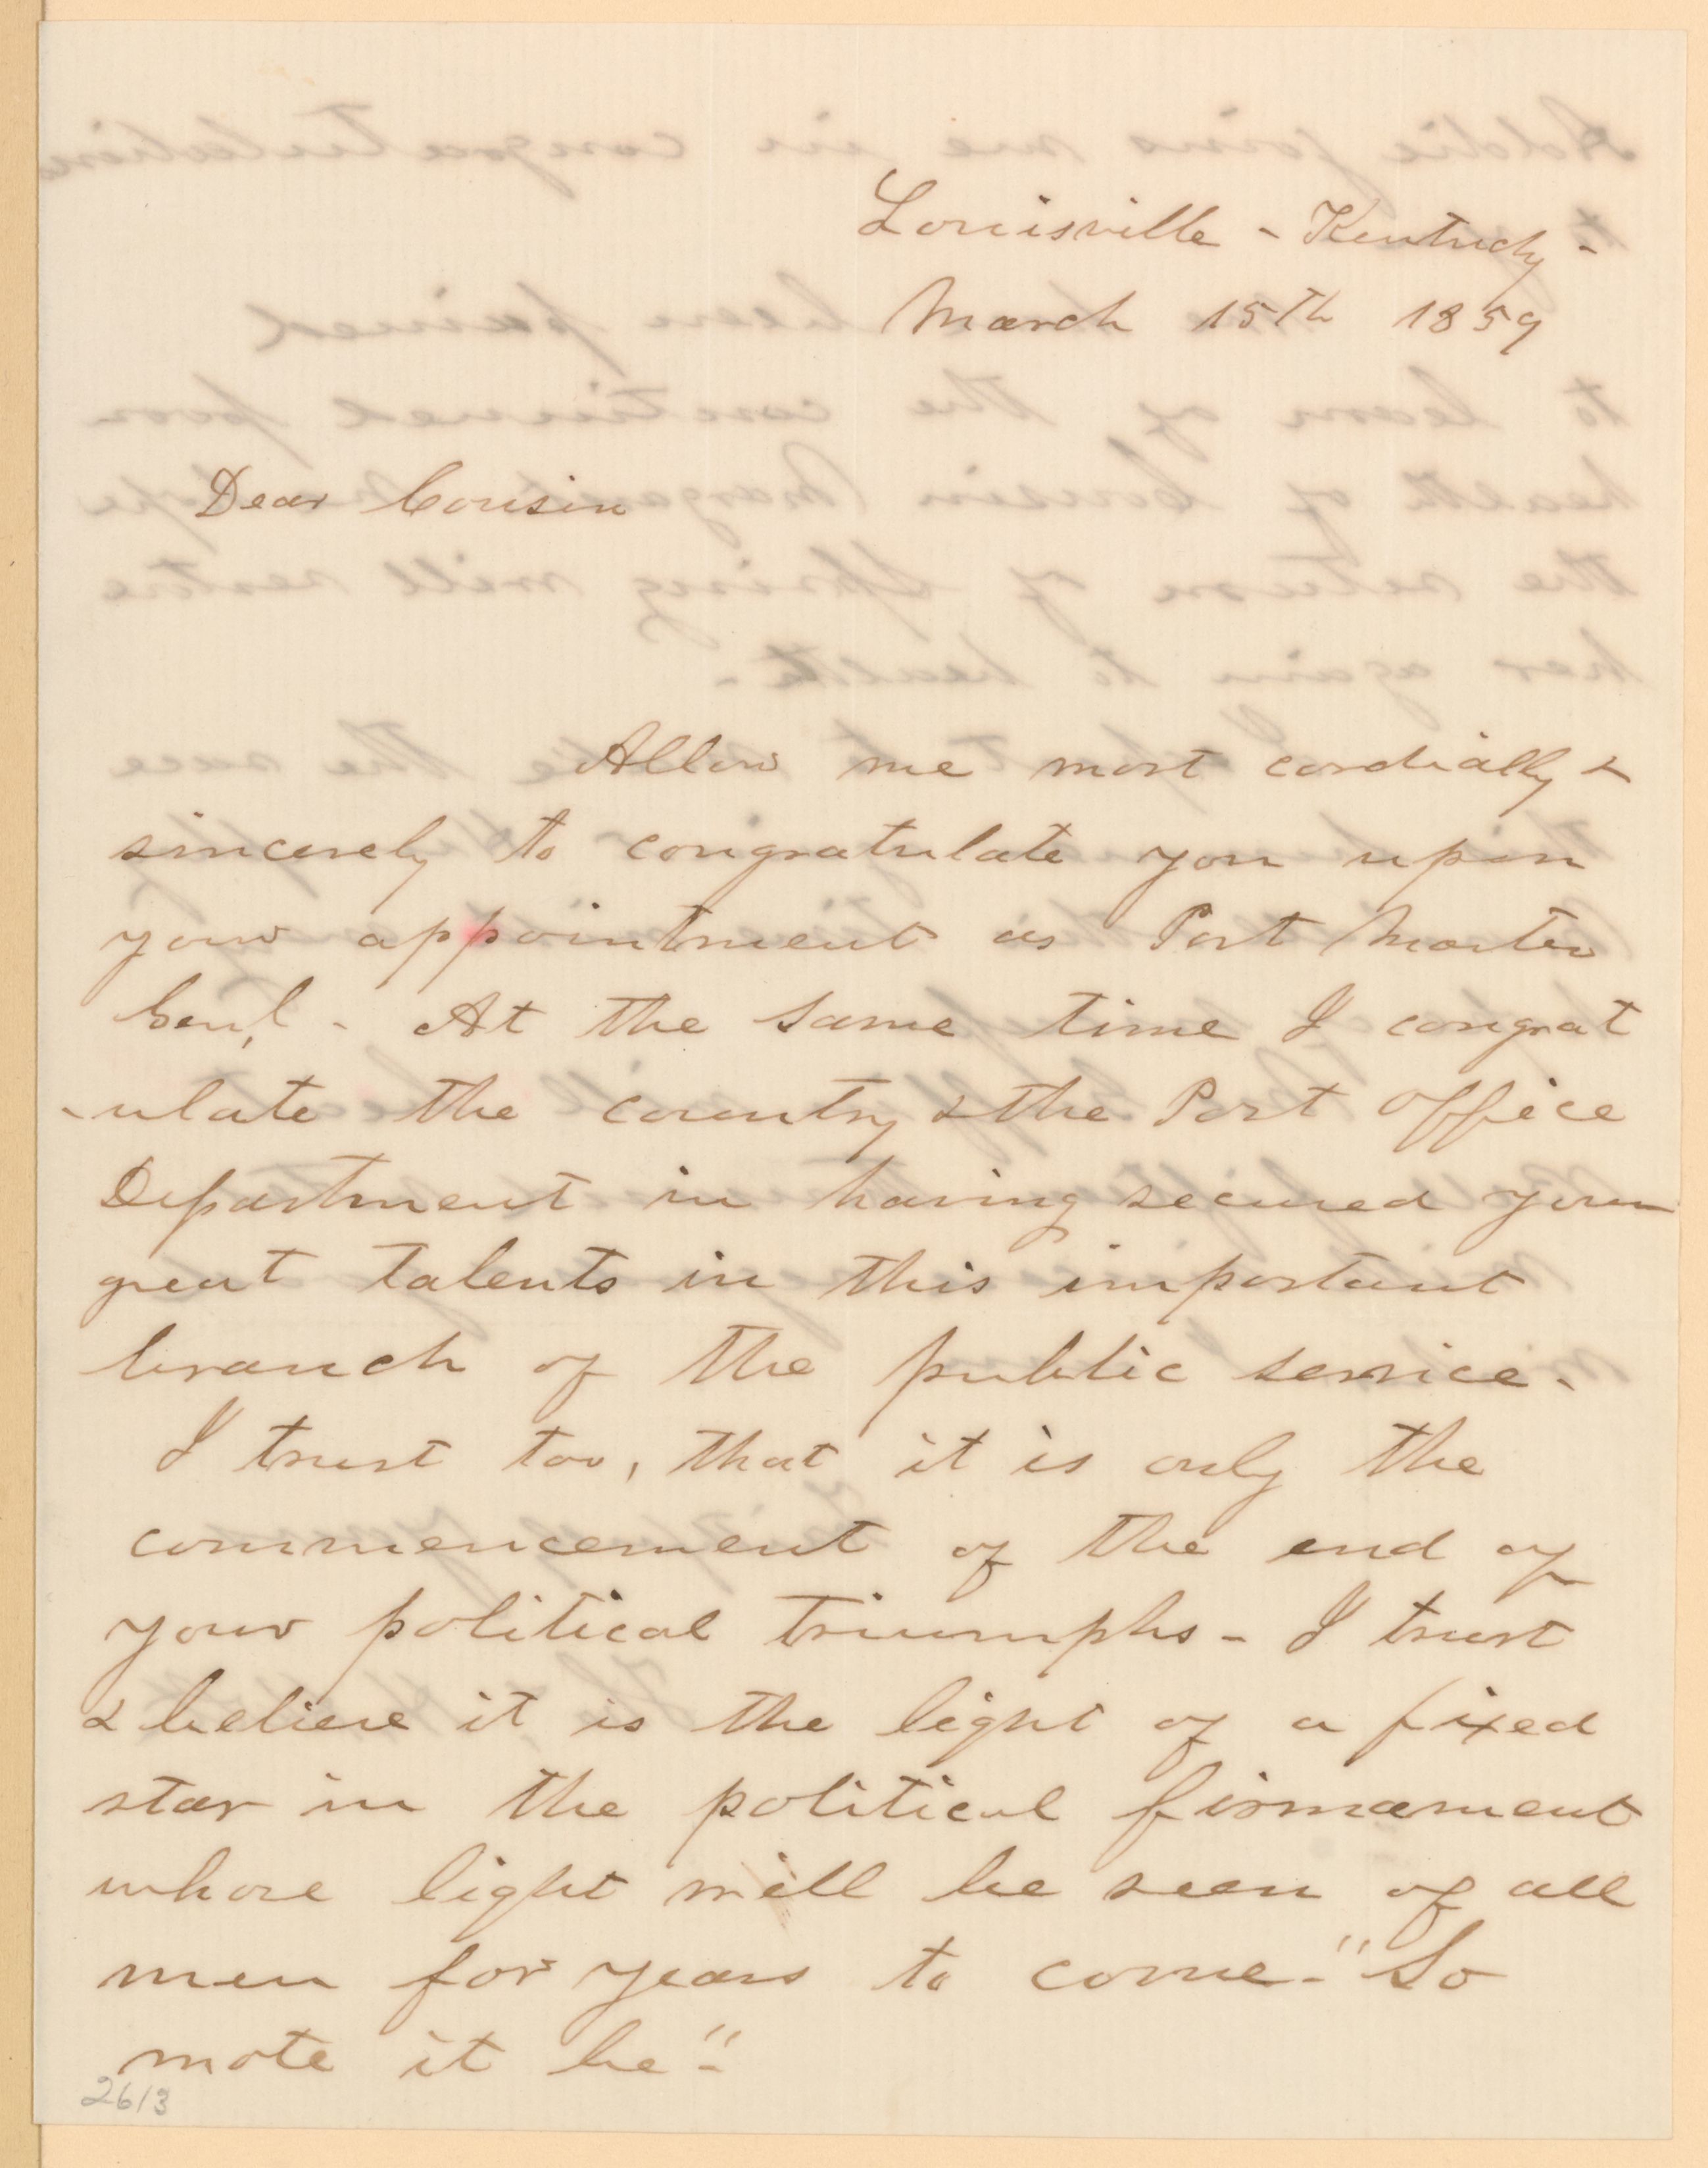 Louisville - Kentucky -
March 15th 1859
Dear Cousin
Allow me most cordially &
sincerely to congratulate you upon
your appointment as Post Master
Genl. - At the same time I congrat
-ulate the country & the Post Office
Department in having secured your
great talents in this important
branch of the public service.
I trust too, that it is only the
commencement of the end of
your political triumphs - I trust
& believe it is the light of a fixed
star in the political firmament
whose light will be seen of all
men for years to come - "So
mote it be" -
2613